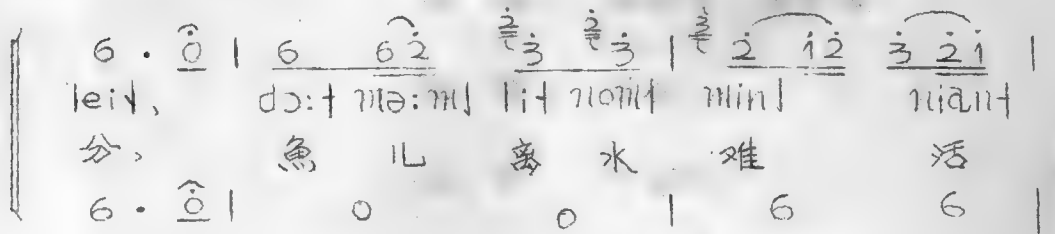 6 · 0̇ | 6 6 2̇ 3̇ 3̇ | 2̇ 1̇ 2̇ 3̇ 2̇ 1̇ |
lei˧, dɔ:˧ mə:m˩ li˧ nom˧ min˩ nian˧
分, 魚 儿 离 水 难 活
6 · 0̇ | 0 0 | 6 6 |